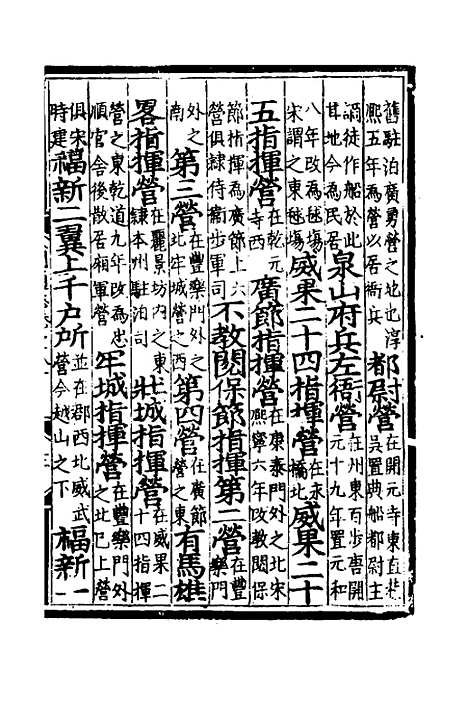 舊駐泊廣勇營之地也淳
熙五年為營以居衙兵
都尉營
在開元寺東直巷
吳置典船都尉主
謫徒作船於此
其地今為民居
泉山府兵左衙營
在州東百步唐開
元十九年置元和
八年改為毬場
宋謂之東毬場
威果二十四指揮營
在永
橋北
威果二十
五指揮營
在乾元
寺西
廣節指揮營
在康泰門外之北宋
熙寧六年改教閱保
節指揮為廣節上六
營俱隸侍衛步軍司
不教閱保節指揮第二營
在豐
樂門
外之
南
第三營
在豐樂門外之
北牢城營之西
第四營
在廣節
營之東
有馬雄
畧指揮營
在麗景坊內之東
隸本州駐泊司
壯城指揮營
在威果二
十四指揮
營之東乾道九年改為忠
順官舎後散居廂軍營
牢城指揮營
在豐樂門外
之北已上營
俱宋
時建
福新二翼上千户所
並在郡西北威武
營今越山之下
福新一